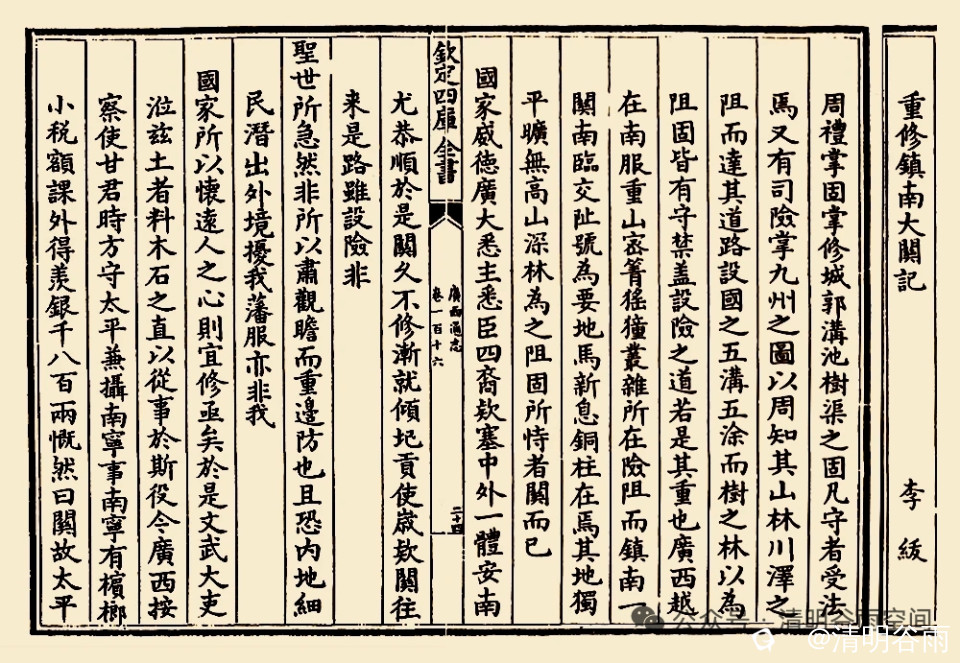 重修鎮南大關記　李紱
周禮掌固掌修城郭溝池樹渠之固凡守者受法
焉又有司險掌九州之圖以周知其山林川澤之
阻而達其道路設國之五溝五涂而樹之林以為
阻固皆有守禁蓋設險之道若是其重也廣西越
在南服重山宻箐猺獞叢雜所在險阻而鎮南一
關南臨交阯號為要地馬新息銅柱在焉其地獨
平曠無高山深林為之阻固所恃者關而已
國家威德廣大悉主悉臣四裔欵塞中外一體安南
欽定四庫全書
廣西通志
卷一百十六
二十四
尤恭順於是關久不修漸就傾圯貢使嵗欵關往
来是路雖設險非
聖世所急然非所以肅觀瞻而重邊防也且恐内地細
民潛出外境擾我藩服亦非我
國家所以懷遠人之心則宜修亟矣於是文武大吏
涖兹土者料木石之直以從事於斯役今廣西按
察使甘君時方守太平兼攝南寧事南寧有檳榔
小税額課外得羨銀千八百兩慨然曰關故太平
公众号·清明谷雨空间
@清明谷雨